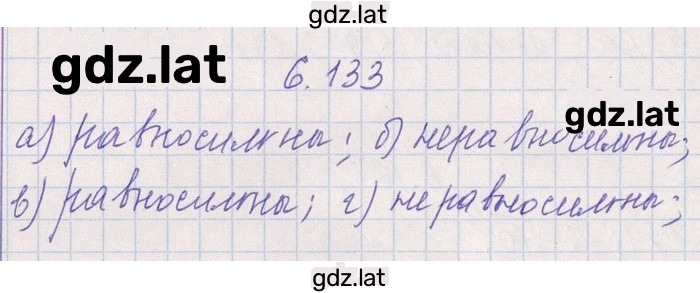 gdz.lat
gdz.lat
6.133
gdz.lat
а) равносильны; б) неравносильны;
в) равносильны; г) неравносильны;
gdz.lat